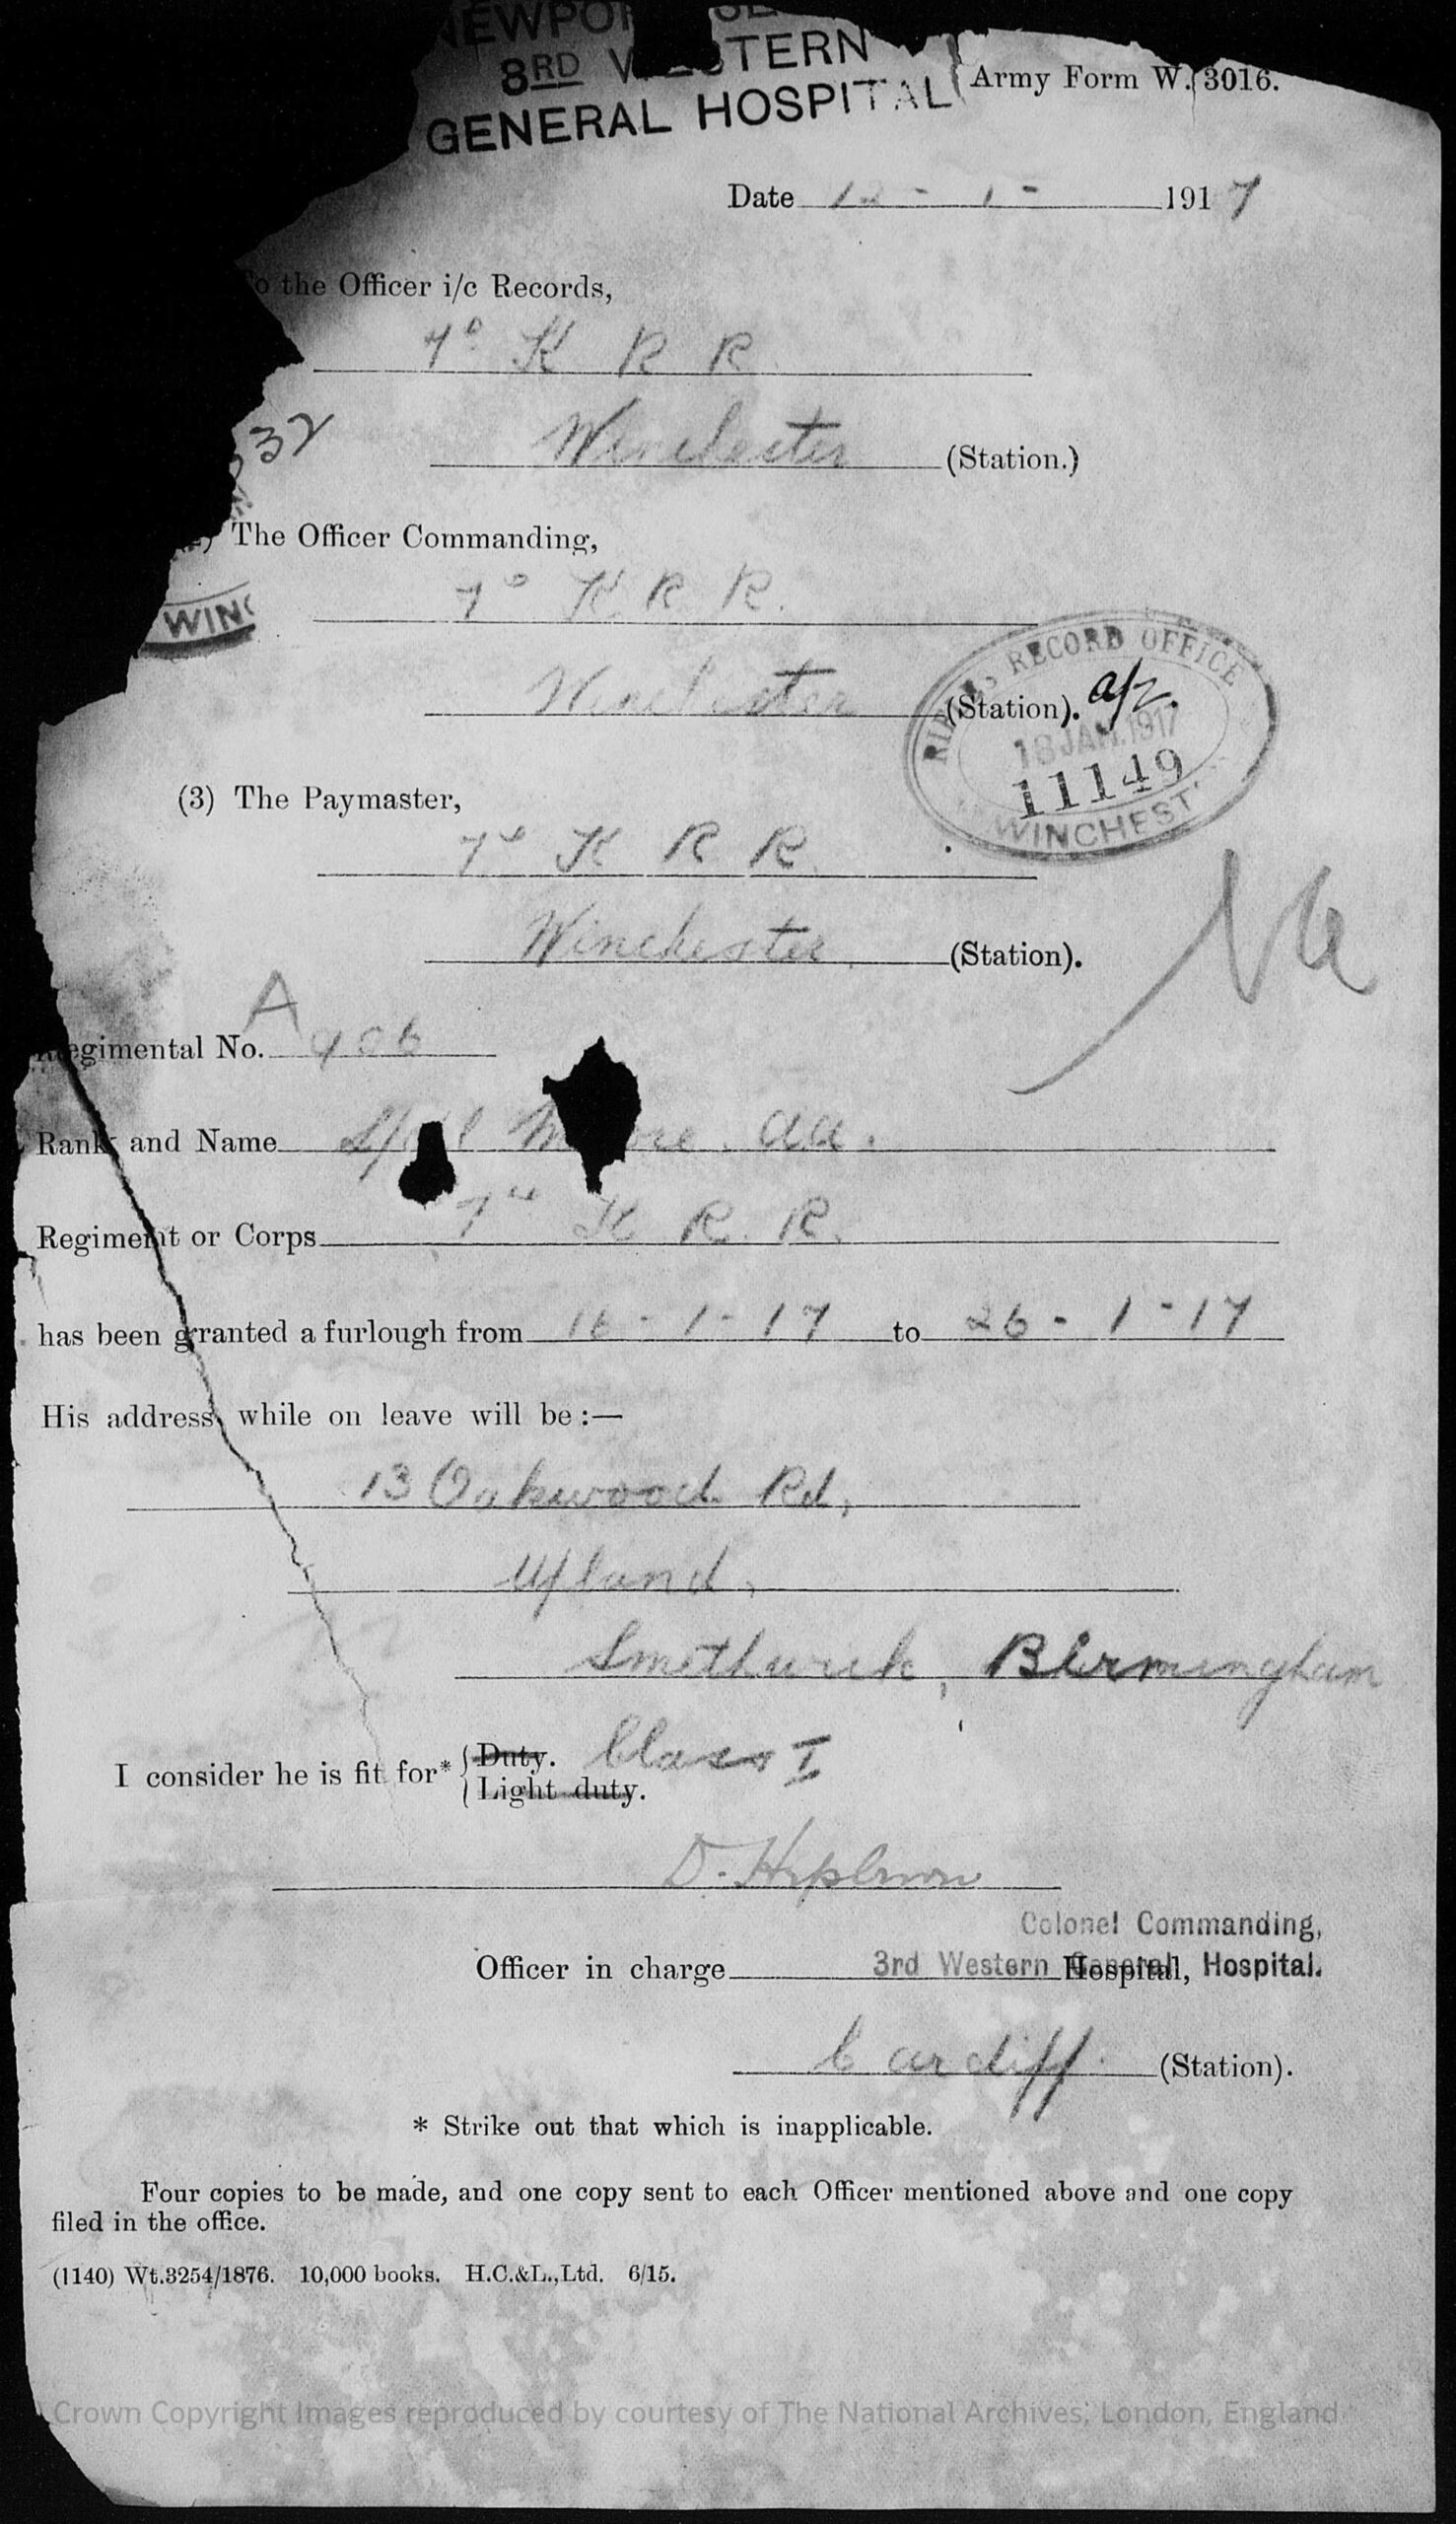 8RD WESTERN
GENERAL HOSPITAL
Army Form W. 3016.
Date 12 - 1 - 1917
To the Officer i/c Records,
7º K R R.
32
Winchester (Station.)
The Officer Commanding,
WIN
7º K R R.
Winchester (Station).
RECORD OFFICE
a/z.
18 JAN. 1917
11149
WINCHEST
(3) The Paymaster,
7th K R R.
Winchester (Station).
A
Regimental No. 906
Rank and Name L/Cpl Moore. AA.
Regiment or Corps 7th K R. R.
has been granted a furlough from 16 - 1 - 17 to 26 - 1 - 17
His address while on leave will be :—
13 Oakwood Rd,
Upland,
Smethwick, Birmingham
I consider he is fit for* { Duty. Class I
{ Light duty.
Colonel Commanding,
Officer in charge 3rd Western General Hospital, Hospital.
Cardiff. (Station).
* Strike out that which is inapplicable.
Four copies to be made, and one copy sent to each Officer mentioned above and one copy
filed in the office.
(1140) Wt.3254/1876. 10,000 books. H.C.&L.,Ltd. 6/15.
Crown Copyright Images reproduced by courtesy of The National Archives, London, England